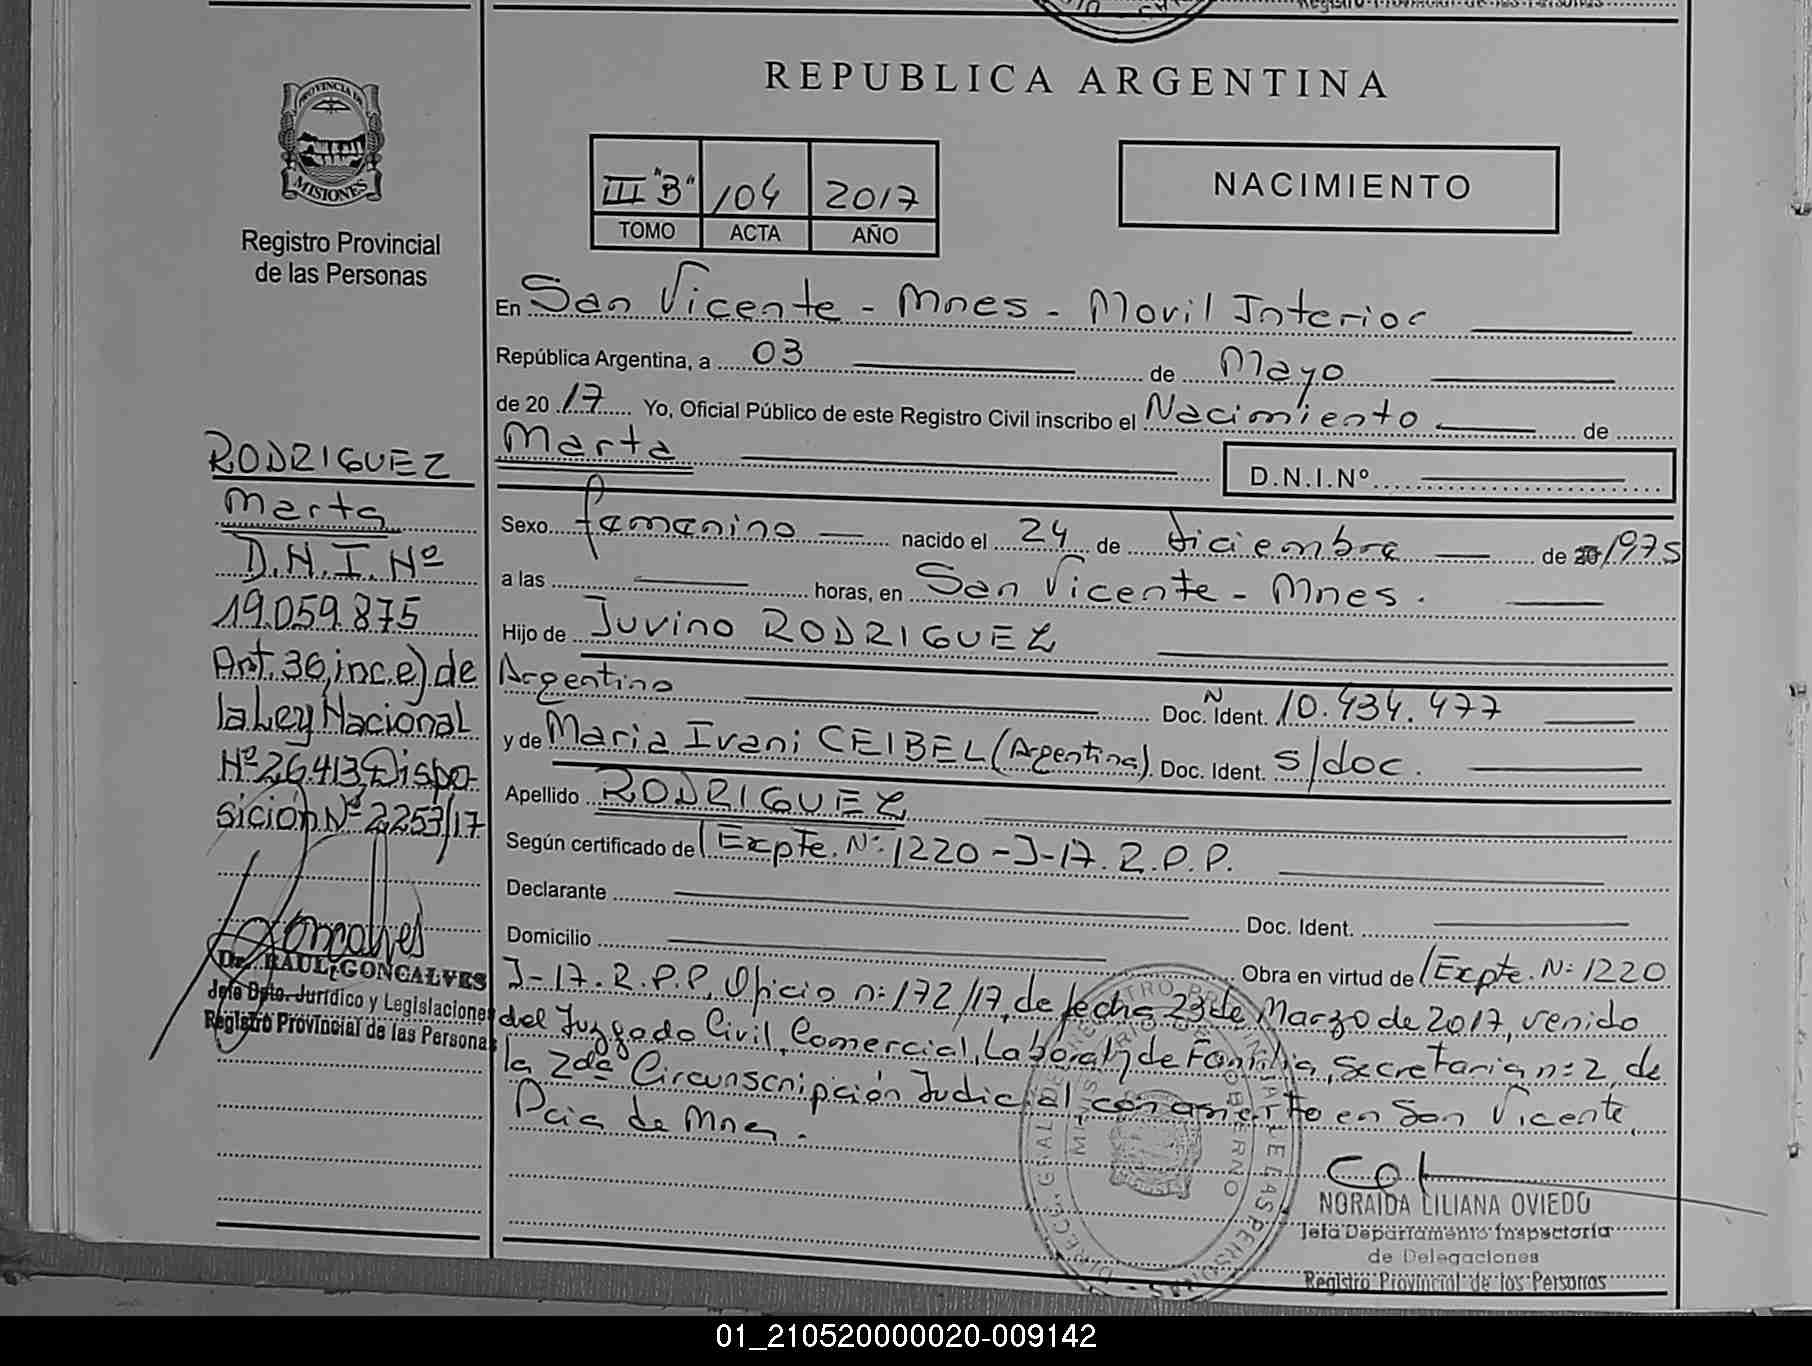 Registro Provincial de las Personas
REPUBLICA ARGENTINA
PROVINCIA DE
MISIONES
Registro Provincial
de las Personas
III "B" 104 2017
TOMO ACTA AÑO
NACIMIENTO
En San Vicente - Mnes - Movil Interior
República Argentina, a 03 de Mayo
de 20 17 Yo, Oficial Público de este Registro Civil inscribo el Nacimiento de
Marta D.N.I.Nº
Sexo femenino nacido el 24 de diciembre de 20 1975
a las horas, en San Vicente - Mnes.
Hijo de Juvino RODRIGUEZ
Argentino Doc. Ident. Nº 10.434.477
y de Maria Ivani CEIBEL (Argentina). Doc. Ident. s/doc.
Apellido RODRIGUEZ
Según certificado de Expte. Nº: 1220-J-17. R.P.P.
Declarante Doc. Ident.
Domicilio Obra en virtud de Expte. N: 1220
J-17. R.P.P, Oficio n: 172/17, de fecha 23 de Marzo de 2017, venido
del Juzgado Civil, Comercial, Laboral y de Familia, Secretaria n: 2, de
la 2da Circunscripción Judicial con asiento en San Vicente,
Pcia de Mnes.
NORAIDA LILIANA OVIEDO
Jefa Departamento Inspectoria
de Delegaciones
Registro Provincial de las Personas
RODRIGUEZ
Marta
D.N.I. Nº
19.059.875
Art. 36, inc. e) de
la Ley Nacional
Nº 26.413, Dispo-
sicion Nº 2253/17
Goncalves
Dr. RAUL GONCALVES
Jefe Dpto. Jurídico y Legislaciones
Registro Provincial de las Personas
01_210520000020-009142